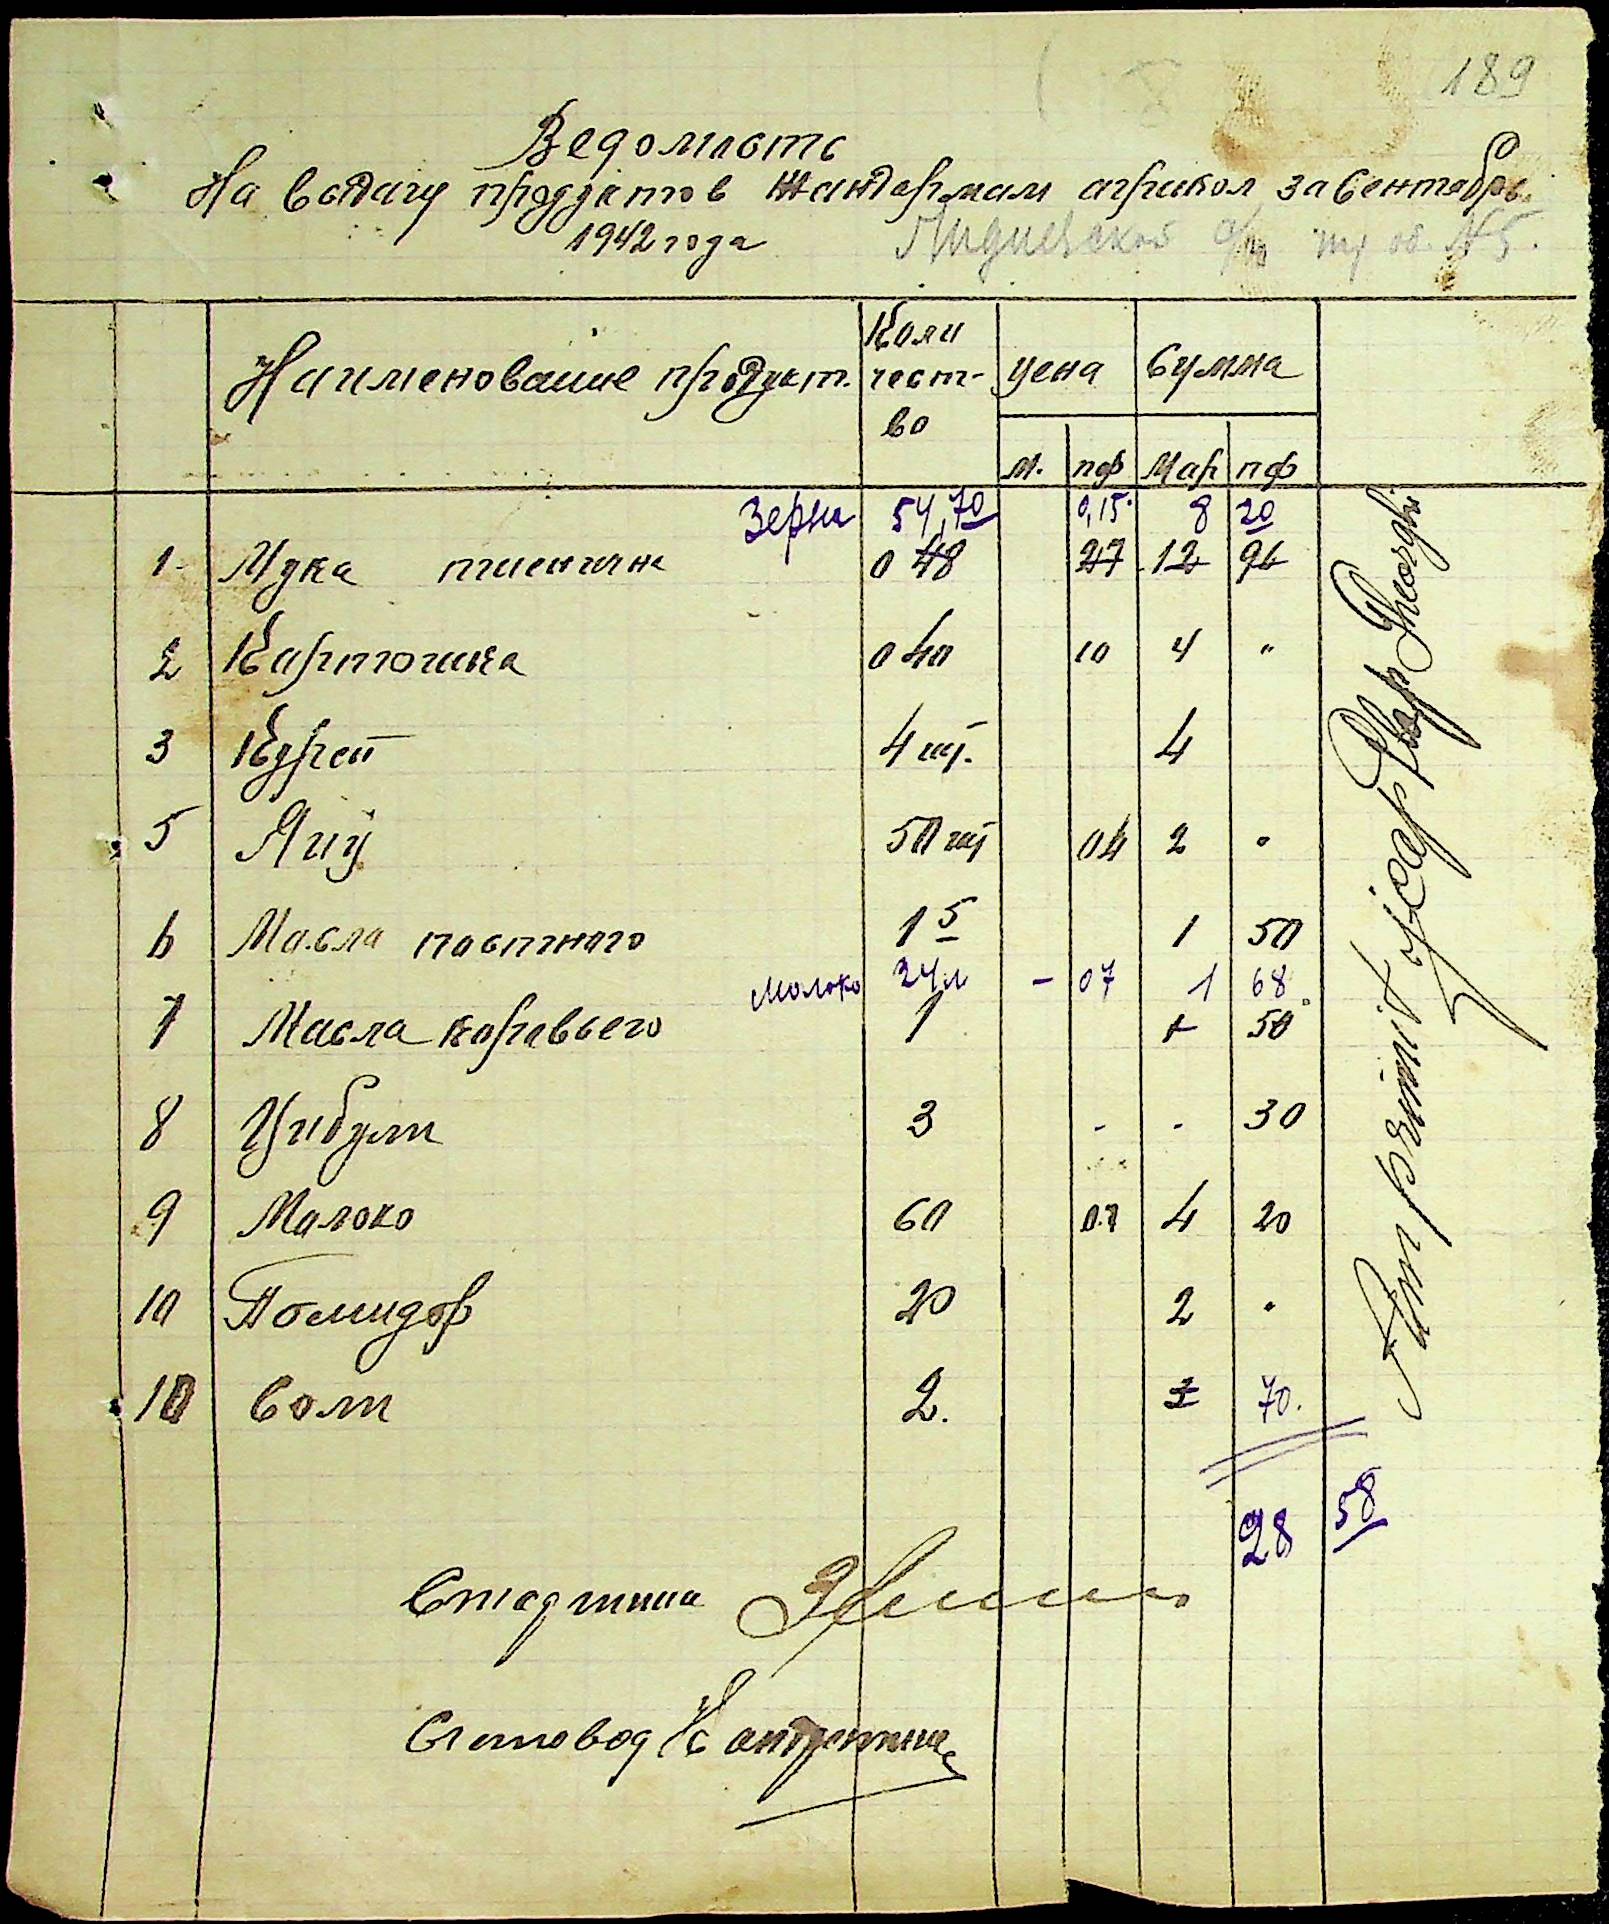 189
Ведомисть
На выдачу продуктов жандармам агрикол за Сентябрь.
1942 года
Наименование продукт. Коли чест- во цена Сумма
м. пф Мар пф
Зерна 54,70 0,15 8 20
1. Мука пшенична 0 48 27 12 96
2 Картошка 0 40 10 4 "
3 Курей 4 шт. 4
5 Яиц 50 шт 04 2 "
6 Масла постного 1 5 1 50
Молоко 24 л - 07 1 68
7 Масла коравьего 1 1 50
8 Цибули 3 - - 30
9 Малоко 60 0.7 4 20
10 Помидор 20 2 "
10 Соли 2. 1 70.
28 58
Счетовод
Am primit Pop Gheorghi